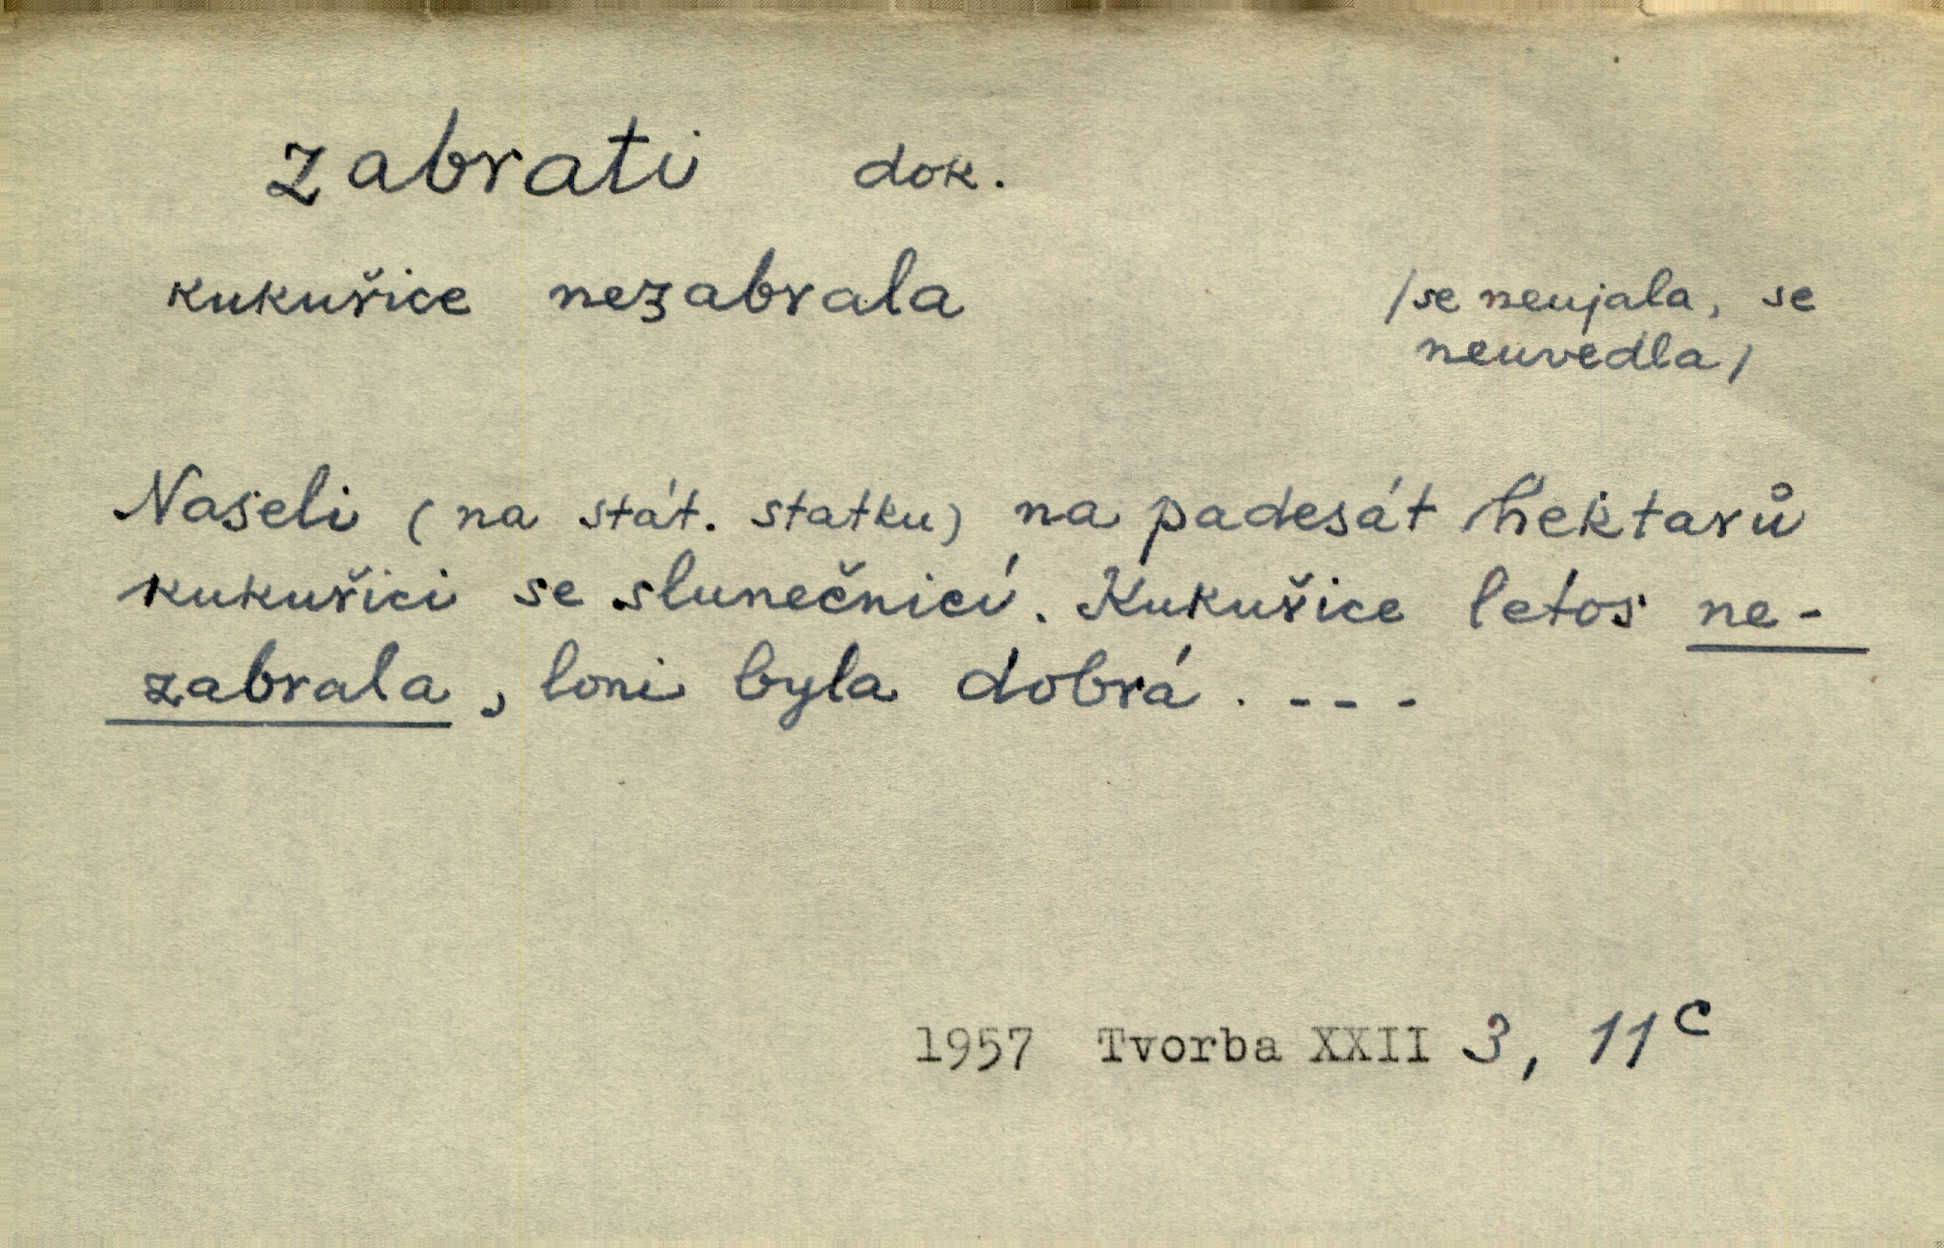 zabrati dok.
kukuřice nezabrala /se neujala, se
neuvedla/
Naseli (na stát. statku) na padesát hektarů
kukuřici se slunečnicí. Kukuřice letos ne-
zabrala, loni byla dobrá. ---
1957 Tvorba XXII 3, 11c